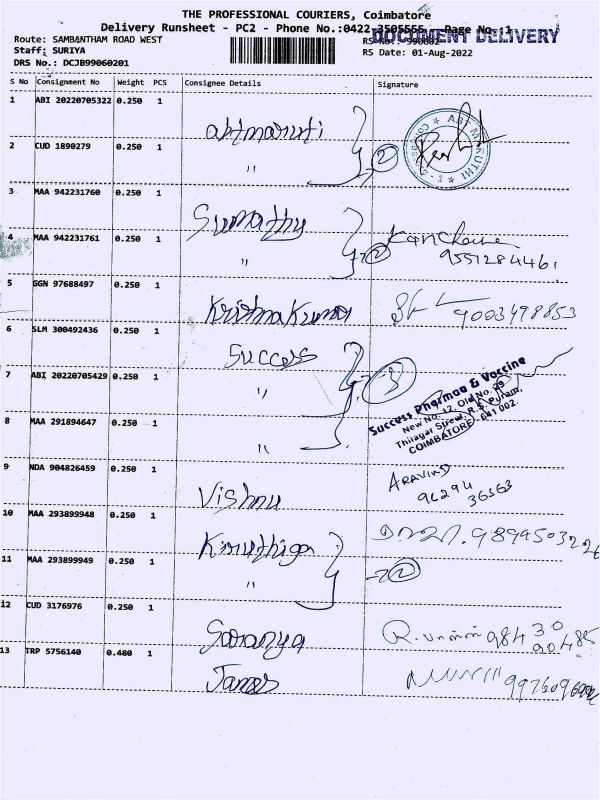 THE PROFESSIONAL COURIERS, Coimbatore
Delivery Runsheet - PC2 - Phone No.:0422 3505555 Page No. 1
DOCUMENT DELIVERY
Route: SAMBANTHAM ROAD WEST RS No.: 990602
Staff: SURIYA RS Date: 01-Aug-2022
DRS No.: DCJB99060201
S No Consignment No Weight PCS Consignee Details Signature
1 ABI 20220705322 0.250 1 abtmaruti
2 CUD 1890279 0.250 1 " 2
3 MAA 942231760 0.250 1 Sumathy
4 MAA 942231761 0.250 1 " 2 Kanchana
9551284461
5 GGN 97688497 0.250 1 Krishna Kumar 9003498853
6 SLM 300492436 0.250 1 Success
7 ABI 20220705429 0.250 1 " 3
Success Pharmaa & Vaccine
New No. 12, Old No. 29
Thilagar Street, R.S. Puram,
COIMBATORE - 641 002.
8 MAA 291894647 0.250 1 "
9 NDA 904826459 0.250 1 Vishnu ARAVIND
96294
36563
10 MAA 293899948 0.250 1 Kiruthiga 9899503226
11 MAA 293899949 0.250 1 " 2
12 CUD 3176976 0.250 1 Saranya 98430
90485
13 TRP 5756140 0.480 1 James